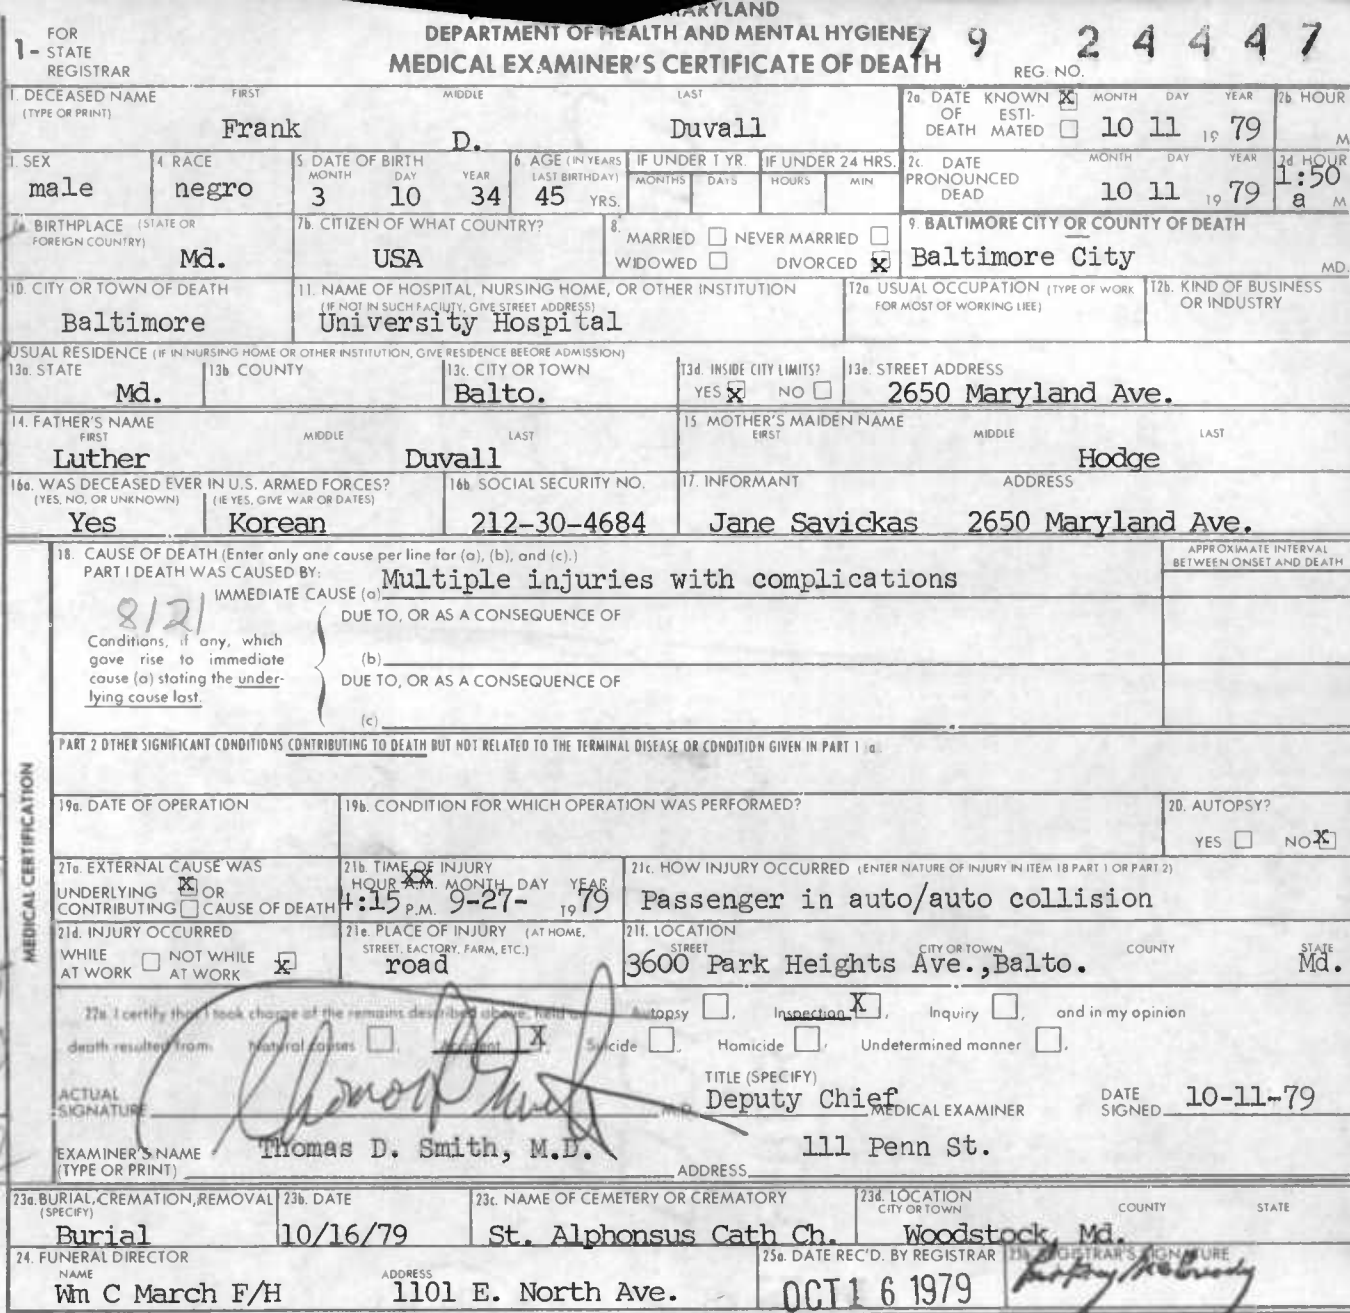 MARYLAND
DEPARTMENT OF HEALTH AND MENTAL HYGIENE
MEDICAL EXAMINER'S CERTIFICATE OF DEATH
1- FOR STATE REGISTRAR
REG. NO. 79 24447
1. DECEASED NAME (TYPE OR PRINT) FIRST MIDDLE LAST
Frank D. Duvall
2a. DATE OF DEATH KNOWN X ESTIMATED MONTH DAY YEAR
10 11 19 79
2b HOUR M
3. SEX
male
4. RACE
negro
5. DATE OF BIRTH MONTH DAY YEAR
3 10 34
6. AGE (IN YEARS LAST BIRTHDAY)
45 YRS.
IF UNDER 1 YR. MONTHS DAYS
IF UNDER 24 HRS. HOURS MIN
2c. DATE PRONOUNCED DEAD MONTH DAY YEAR
10 11 19 79
2d HOUR
1:50 a M
7a. BIRTHPLACE (STATE OR FOREIGN COUNTRY)
Md.
7b. CITIZEN OF WHAT COUNTRY?
USA
8. MARRIED NEVER MARRIED
WIDOWED DIVORCED X
9. BALTIMORE CITY OR COUNTY OF DEATH
Baltimore City MD.
10. CITY OR TOWN OF DEATH
Baltimore
11. NAME OF HOSPITAL, NURSING HOME, OR OTHER INSTITUTION
(IF NOT IN SUCH FACILITY, GIVE STREET ADDRESS)
University Hospital
12a. USUAL OCCUPATION (TYPE OF WORK FOR MOST OF WORKING LIFE)
12b. KIND OF BUSINESS OR INDUSTRY
USUAL RESIDENCE (IF IN NURSING HOME OR OTHER INSTITUTION, GIVE RESIDENCE BEFORE ADMISSION)
13a. STATE
Md.
13b. COUNTY
13c. CITY OR TOWN
Balto.
13d. INSIDE CITY LIMITS?
YES X NO
13e. STREET ADDRESS
2650 Maryland Ave.
14. FATHER'S NAME FIRST MIDDLE LAST
Luther Duvall
15 MOTHER'S MAIDEN NAME FIRST MIDDLE LAST
Hodge
16a. WAS DECEASED EVER IN U.S. ARMED FORCES?
(YES, NO, OR UNKNOWN) (IF YES, GIVE WAR OR DATES)
Yes Korean
16b. SOCIAL SECURITY NO.
212-30-4684
17. INFORMANT ADDRESS
Jane Savickas 2650 Maryland Ave.
MEDICAL CERTIFICATION
18. CAUSE OF DEATH (Enter only one cause per line for (a), (b), and (c).)
APPROXIMATE INTERVAL BETWEEN ONSET AND DEATH
PART I DEATH WAS CAUSED BY:
IMMEDIATE CAUSE (a) Multiple injuries with complications
8121
DUE TO, OR AS A CONSEQUENCE OF
Conditions, if any, which
gave rise to immediate
cause (a) stating the under-
lying cause last.
(b)
DUE TO, OR AS A CONSEQUENCE OF
(c)
PART 2 OTHER SIGNIFICANT CONDITIONS CONTRIBUTING TO DEATH BUT NOT RELATED TO THE TERMINAL DISEASE OR CONDITION GIVEN IN PART 1 a.
19a. DATE OF OPERATION
19b. CONDITION FOR WHICH OPERATION WAS PERFORMED?
20. AUTOPSY?
YES NO X
21a. EXTERNAL CAUSE WAS
UNDERLYING X OR
CONTRIBUTING CAUSE OF DEATH
21b. TIME OF INJURY
HOUR A.M. MONTH DAY YEAR
4:15 P.M. 9-27- 19 79
21c. HOW INJURY OCCURRED (ENTER NATURE OF INJURY IN ITEM 18 PART 1 OR PART 2)
Passenger in auto/auto collision
21d. INJURY OCCURRED
WHILE AT WORK NOT WHILE AT WORK X
21e. PLACE OF INJURY (AT HOME, STREET, FACTORY, FARM, ETC.)
road
21f. LOCATION
STREET CITY OR TOWN COUNTY STATE
3600 Park Heights Ave.,Balto. Md.
22a. I certify that I took charge of the remains described above, held an Autopsy , Inspection X , Inquiry , and in my opinion
death resulted from: Natural causes , Accident X , Suicide , Homicide , Undetermined manner .
ACTUAL SIGNATURE M.D.
TITLE (SPECIFY)
Deputy Chief MEDICAL EXAMINER
DATE SIGNED 10-11-79
EXAMINER'S NAME (TYPE OR PRINT) Thomas D. Smith, M.D.
ADDRESS 111 Penn St.
23a. BURIAL, CREMATION, REMOVAL (SPECIFY)
Burial
23b. DATE
10/16/79
23c. NAME OF CEMETERY OR CREMATORY
St. Alphonsus Cath Ch.
23d. LOCATION CITY OR TOWN COUNTY STATE
Woodstock, Md.
24. FUNERAL DIRECTOR
NAME ADDRESS
Wm C March F/H 1101 E. North Ave.
25a. DATE REC'D. BY REGISTRAR
OCT 16 1979
25b. REGISTRAR'S SIGNATURE